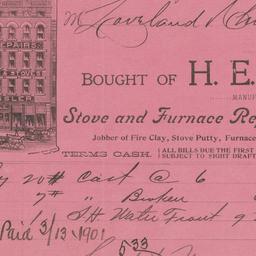 M Loveland
BOUGHT OF H. E.
MANUF
Stove and Furnace Re
Jobber of Fire Clay, Stove Putty, Furnace
TERMS CASH. ALL BILLS DUE THE FIRST
SUBJECT TO SIGHT DRAFT
20# Cast @ 6
7# " Broken
1 SH Water Front 9
Paid 3/13 1901
5 33